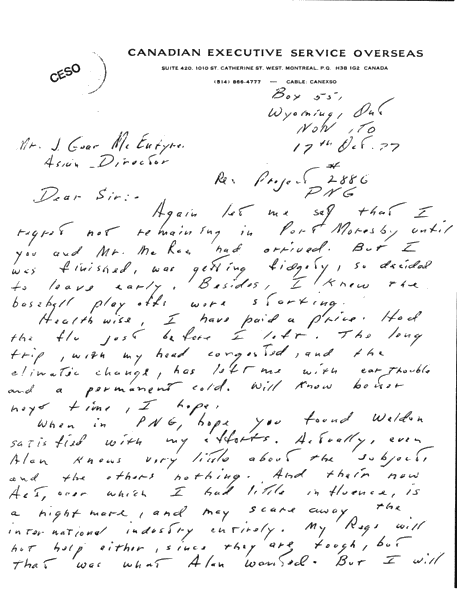 CESO
CANADIAN EXECUTIVE SERVICE OVERSEAS
SUITE 420, 1010 ST. CATHERINE ST. WEST, MONTREAL, P.Q. H3B 1G2 CANADA
(514) 866-4777 — CABLE: CANEXSO
Box 55,
Wyoming, Ont
N0N 1T0
17th Oct. 77
Mr. J Guar McEntyre.
Asian Director
Re: Project #2886
PNG
Dear Sir:-
Again let me say that I
regret not remaining in Port Moresby until
you and Mr. McRae had arrived. But I
was finished, was getting fidgety, so decided
to leave early. Besides, I knew the
baseball play offs were starting.
Health wise, I have paid a price. Had
the flu just before I left. The long
trip, with my head congested, and the
climatic change, has left me with ear trouble
and a permanent cold. Will know better
next time, I hope.
When in PNG, hope you found Weldon
satisfied with my efforts. Actually, even
Alan knows very little about the subjects
and the others nothing. And their new
Act, over which I had little influence, is
a nightmare, and may scare away the
international industry entirely. My Regs will
not help either, since they are tough, but
that was what Alan wanted. But I will